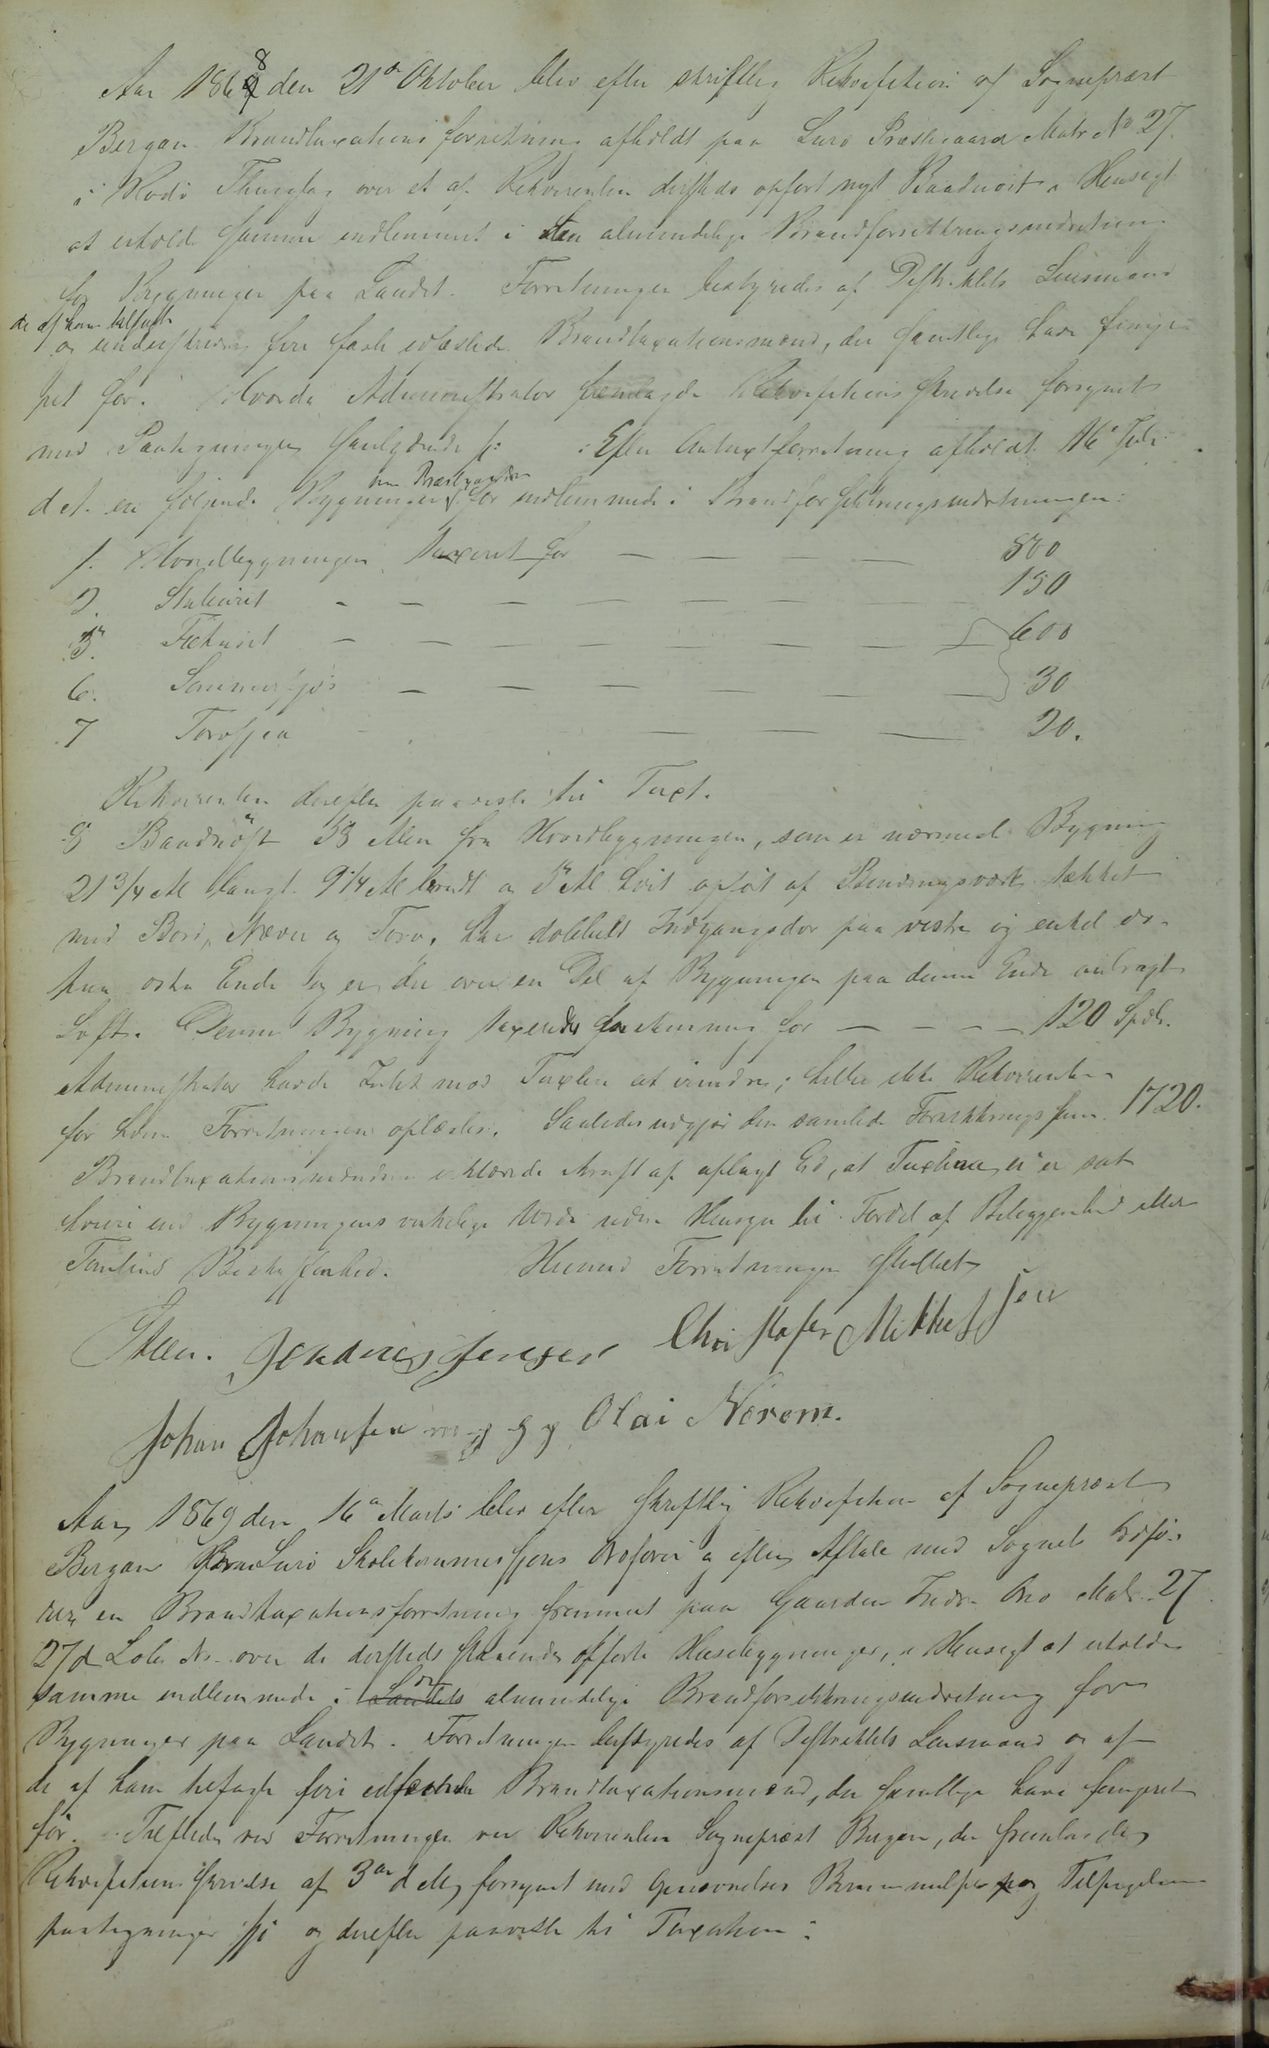 Aar 1868 den 21de Oktober blev efter skriftlig Rekvisition af Sogneprest
Bergan Brandtaxationsforretning afholdt paa Lurö Prestegaard Matr No 27.
i Rödö Thinglag over et af Rekvirenten dersteds opfört nyt Baadnöst i Hensigt
at erholde samme indlemmet i den almindelige Brandforsikringsindretning
for Bygninger paa Landet. Forretningen bestyredes af Distriktets Lensmand
de af ham tilsagte
og undertegnede fire faste edfæstede Brandtaxationsmænd, der samtlige have funge-
ret för. Hvorda Administrator fremlagde Rekvisitionsskrivelse forsynet
med Paategninger saalydende s: : Efter Omtaxtforretning afholdt 16de Juli
d. A. ere fölgende Bygninger paa Præstegaarden för indlemmede i Brandforsikringsindretningen:
1. Hovedbygningen taxeret for — — — 800
2. Stabburet - — — — — — — 150
3. Fæhuset - — — — — — — 600
6. Sommerfjös — — — — — — — 30
7 Torvsjaa - — — — — 20.
Rekvirenten derefter paaviste til Taxt.
8 Baadnöst 53 Alen fra Hovedbygningen, som er nærmeste Bygning
21 3/4 Al langt. 9 1/4 Al bredt og 5 Al höit opfört af Bindingsværk tækket
med Bord, Næver og Torv. har dobbelt Indgangsdör paa vestre og enkel do.
paa östre Ende og er der over en Del af Bygningen paa denne Ende anbragt
Loft. Denne Bygning taxeredes for — — — — 120 Spdlr.
Administrator havde Intet mod Taxten at erindre; heller ikke Rekvirenten
for hvem Forretningen oplæstes. Saaledes udgjör den samlede Forsikringssum 1720.
Brandtaxationsmændene erklærede i Kraft af aflagt Ed, at Taxterne ei er sat
höiere end Bygningens virkelige Værdi uden Hensyn til Fordel af Beliggenhed eller
Tomtens Beskaffenhed. Hermed Forretningen sluttet
Jensen Christofer Mikkelssen
Johan Johansen m. p. P. Olai Nerem.
Aar 1869 den 16de Marts blev efter skriftlig Rekvisition af Sogneprest
Bergan Lurö Skolekommissjons Ordförer og efter Aftale med Sognets Ordfö-
rer en Brandtaxationsforretning fremmet paa Gaarden Indre Onö Matr. 27
27d Löbe No over de dersteds staaende opförte Husebygninger, i Hensigt at erholde
samme indlemmede i den almindelige Brandforsikringsindretning for
Bygninger paa Landet. Forretningen bestyredes af Distriktets Lensmand og af
de af ham tilsagte fire edfæstede Brandtaxationsmænd, der samtlige have fungeret
för. Tilstede ved Forretningen var Rekvirenten Sogneprest Bergan, der fremlagde
Rekvisitionsskrivelse af 3die d. M. forsynet med Opnævnelses og Tilsigelses
paategninger og derefter paaviste til Taxation: